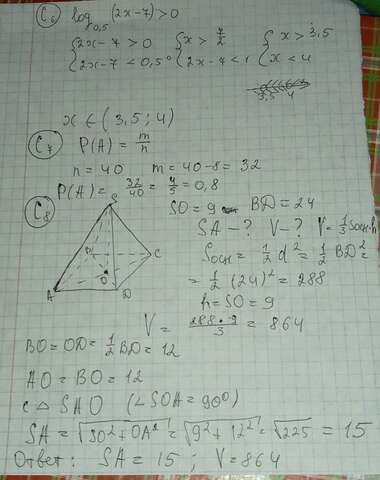 C6 log0,5 (2x-7)>0
{2x-7>0 {x>7/2 {x>3,5
{2x-7<0,5° {2x-7<1 {x<4
3,5 4
x ∈ (3,5; 4)
C7 P(A) = m/n
n = 40 m = 40-8 = 32
P(A) = 32/40 = 4/5 = 0,8
C8 S SO = 9 BD = 24
SA - ? V - ? V = 1/3 Sосн·h
Sосн = 1/2 d² = 1/2 BD² =
= 1/2 (24)² = 288
h = SO = 9
C
O
A D
V = 288·9/3 = 864
BO = OD = 1/2 BD = 12
AO = BO = 12
с △ SAO (∠SOA = 90°)
SA = √SO²+OA² = √9²+12² = √225 = 15
Ответ: SA = 15; V = 864